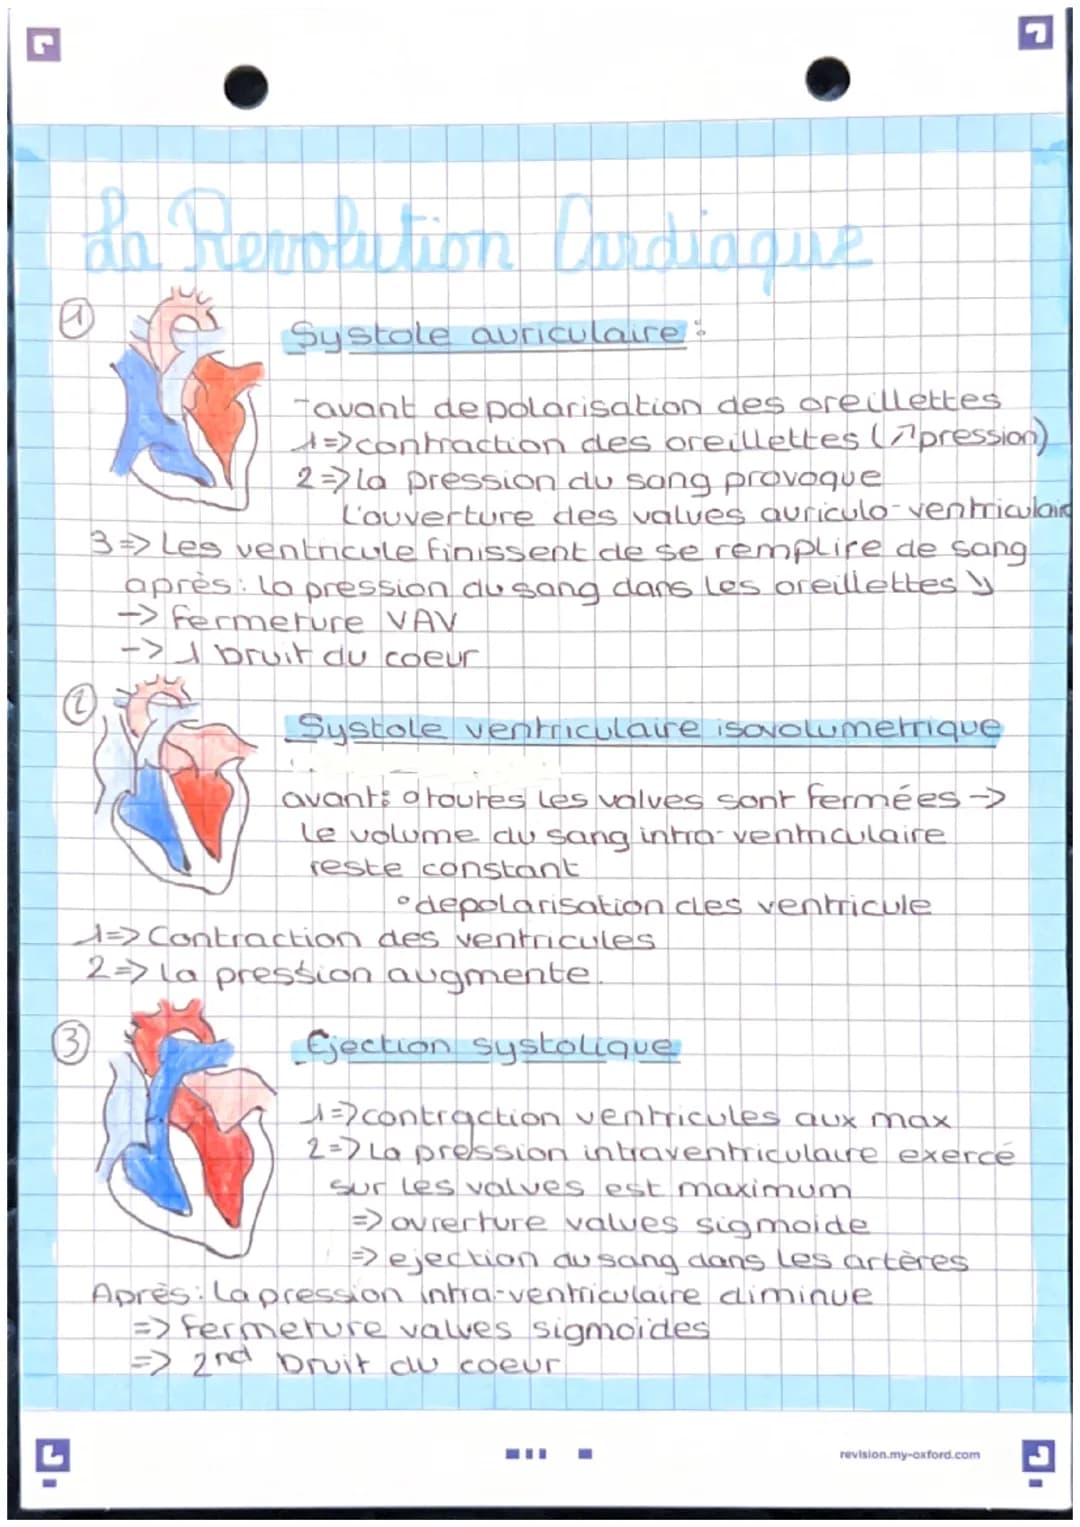 La Revolution Cardiaque
1
Systole auriculaire :
-avant depolarisation des oreillettes
1=>contraction des oreillettes (↗pression)
2=>la pression du sang provoque
l'ouverture des valves auriculo-ventriculair
3=> Les ventricule finissent de se remplire de sang
après: la pression du sang dans les oreillettes ↘
-> fermeture VAV
-> 1 bruit du coeur
2
Systole ventriculaire isovolumetrique
avant: °toutes les valves sont fermées ->
le volume du sang intra-ventriculaire
reste constant
°depolarisation des ventricule
1=> Contraction des ventricules
2=> la pression augmente.
3
Ejection systolique
1=>contraction ventricules aux max
2=> La pression intraventriculaire exercé
sur les valves est maximum
=> ouverture valves sigmoide
=> ejection du sang dans les artères
Après: la pression intra-ventriculaire diminue
=> fermeture valves sigmoïdes
=> 2nd bruit du coeur
revision.my-oxford.com